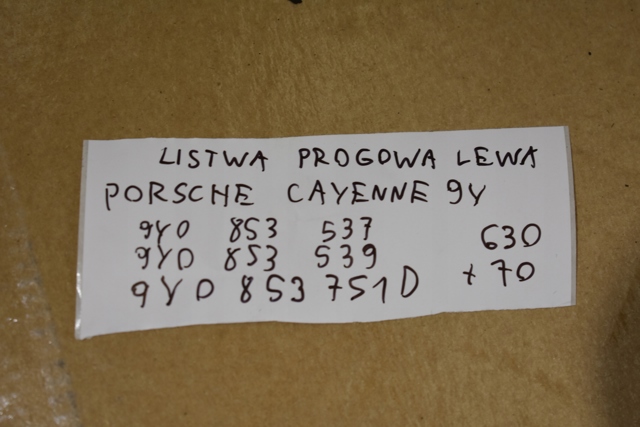 LISTWA PROGOWA LEWA
PORSCHE CAYENNE 9Y
9Y0 853 537
9Y0 853 539
9Y0 853 751D
630
+ 70